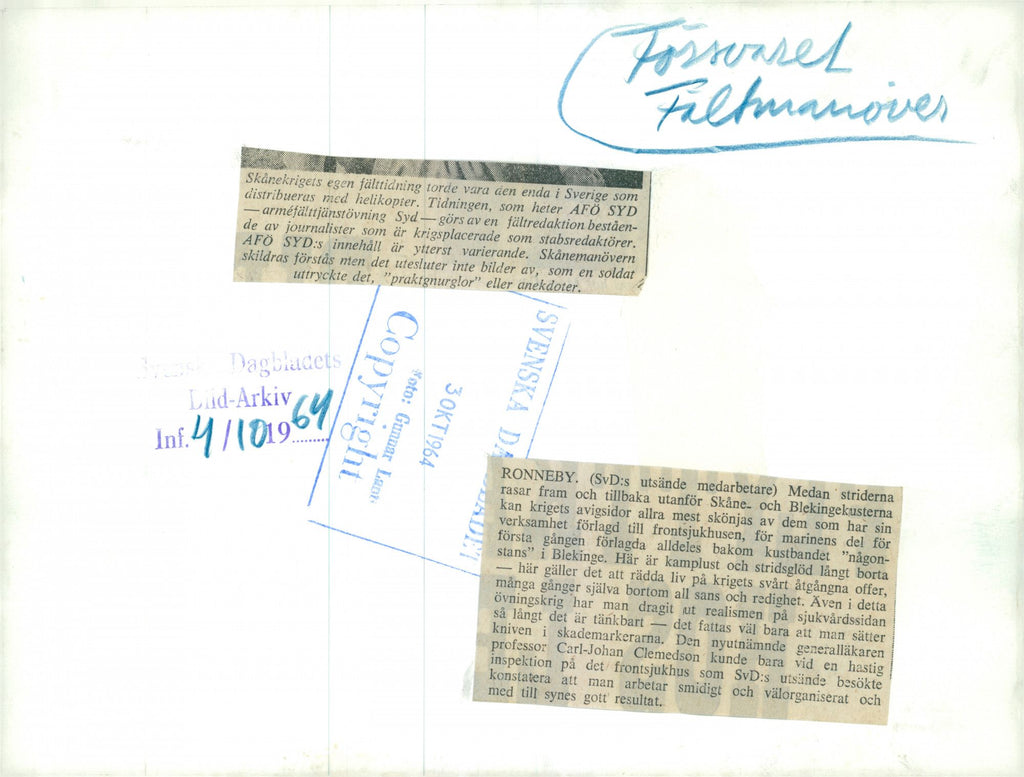 Försvaret
Fältmanöver
Skånekrigets egen fälttidning torde vara den enda i Sverige som
distribueras med helikopter. Tidningen, som heter AFÖ SYD
— arméfälttjänstövning Syd — görs av en fältredaktion beståen-
de av journalister som är krigsplacerade som stabsredaktörer.
AFÖ SYD:s innehåll är ytterst varierande. Skånemanövern
skildras förstås men det utesluter inte bilder av, som en soldat
uttryckte det, "praktgnurglor" eller anekdoter.
Svenska Dagbladets
Bild-Arkiv
Inf. 4/10 1964
Copyright
Foto: Gunnar
3 OKT 1964
SVENSKA DAGBLADET
RONNEBY. (SvD:s utsände medarbetare) Medan striderna
rasar fram och tillbaka utanför Skåne- och Blekingekusterna
kan krigets avigsidor allra mest skönjas av dem som har sin
verksamhet förlagd till frontsjukhusen, för marinens del för
första gången förlagda alldeles bakom kustbandet "någon-
stans" i Blekinge. Här är kamplust och stridsglöd långt borta
— här gäller det att rädda liv på krigets svårt åtgångna offer,
många gånger själva bortom all sans och redighet. Även i detta
övningskrig har man dragit ut realismen på sjukvårdssidan
så långt det är tänkbart — det fattas väl bara att man sätter
kniven i skademarkerarna. Den nyutnämnde generalläkaren
professor Carl-Johan Clemedson kunde bara vid en hastig
inspektion på det frontsjukhus som SvD:s utsände besökte
konstatera att man arbetar smidigt och välorganiserat och
med till synes gott resultat.